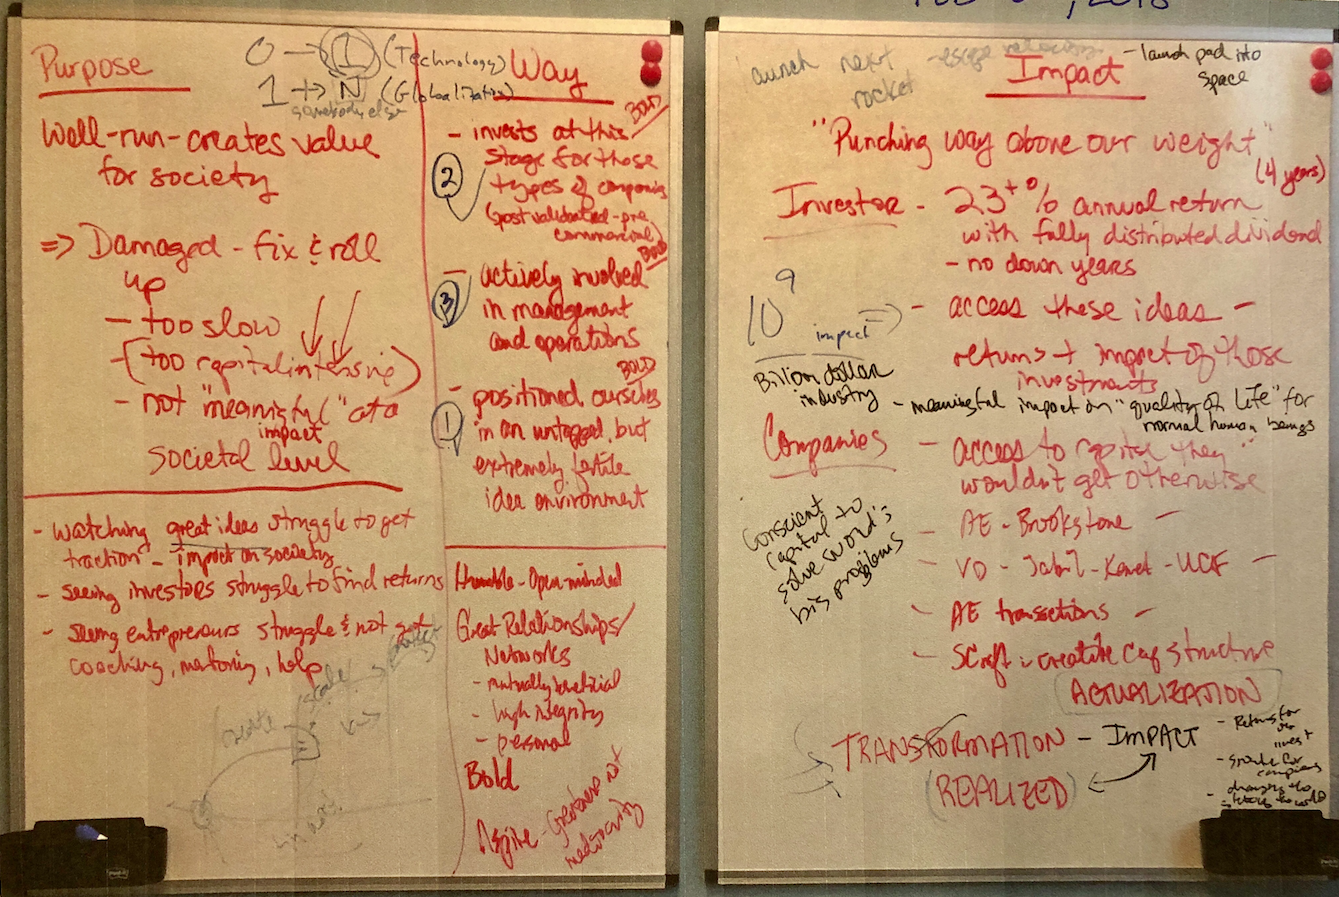 Purpose
0 → 1 (Technology)
1 → N (Globalization)
somebody else
Well-run-creates value
for society
=> Damaged - fix & roll
up
- too slow
- (too capital intensive)
- not "meaningful" at a
impact
societal level
- watching great ideas struggle to get
traction - impact on society
- seeing investors struggle to find returns
- seeing entrepreneurs struggle & not get
coaching, mentoring, help
create
scale
Way
BOLD
- invests at this
stage for those
2
types of companies
(post validated - pre
commercial)
BOLD
- actively involved
3
in management
and operations
BOLD
- positioned ourselves
1
in an untapped, but
extremely fertile
idea environment
Humble - Open minded
Great Relationships/
Networks
- mutually beneficial
- high integrity
- personal
Bold
Aspire - Greatness not
mediocrity
, 2018
launch next
rocket
- escape velocity
- launch pad into
space
Impact
"Punching way above our weight"
(4 years)
Investor - 23+% annual return
with fully distributed dividend
- no down years
10^9
impact =>
Billion dollar
industry
- access these ideas -
returns + impact of those
investments
- meaningful impact on "quality of life" for
normal human beings
Companies - access to capital they
wouldn't get otherwise
Conscient
capital to
solve world's
big problems
- AE - Brookstone -
- VO - Jabil - Kemet - UCF -
- AE transactions -
- SCraft - creative cap structure
ACTUALIZATION
TRANSFORMATION - IMPACT
(REALIZED)
- Returns for
our
invest